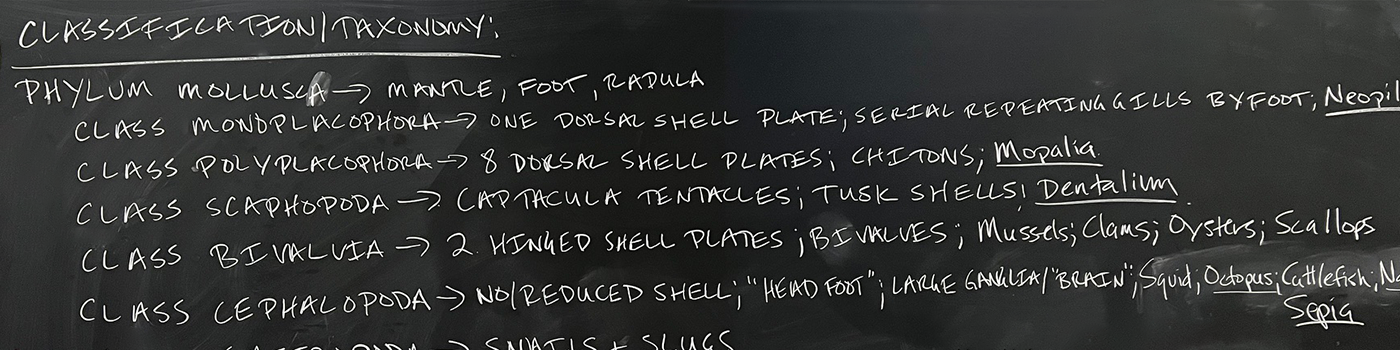 CLASSIFICATION/TAXONOMY:
PHYLUM MOLLUSCA → MANTLE, FOOT, RADULA
CLASS MONOPLACOPHORA → ONE DORSAL SHELL PLATE; SERIAL REPEATING GILLS BY FOOT;
CLASS POLYPLACOPHORA → 8 DORSAL SHELL PLATES; CHITONS; Mopalia
CLASS SCAPHOPODA → CAPTACULA TENTACLES; TUSK SHELLS; Dentalium
CLASS BIVALVIA → 2 HINGED SHELL PLATES; BIVALVES; Mussels; Clams; Oysters; Scallops
CLASS CEPHALOPODA → NO/REDUCED SHELL; "HEAD FOOT"; LARGE GANGLIA/"BRAIN"; Squid; Octopus; Cuttlefish;
Sepia
→ SNAILS + SLUGS